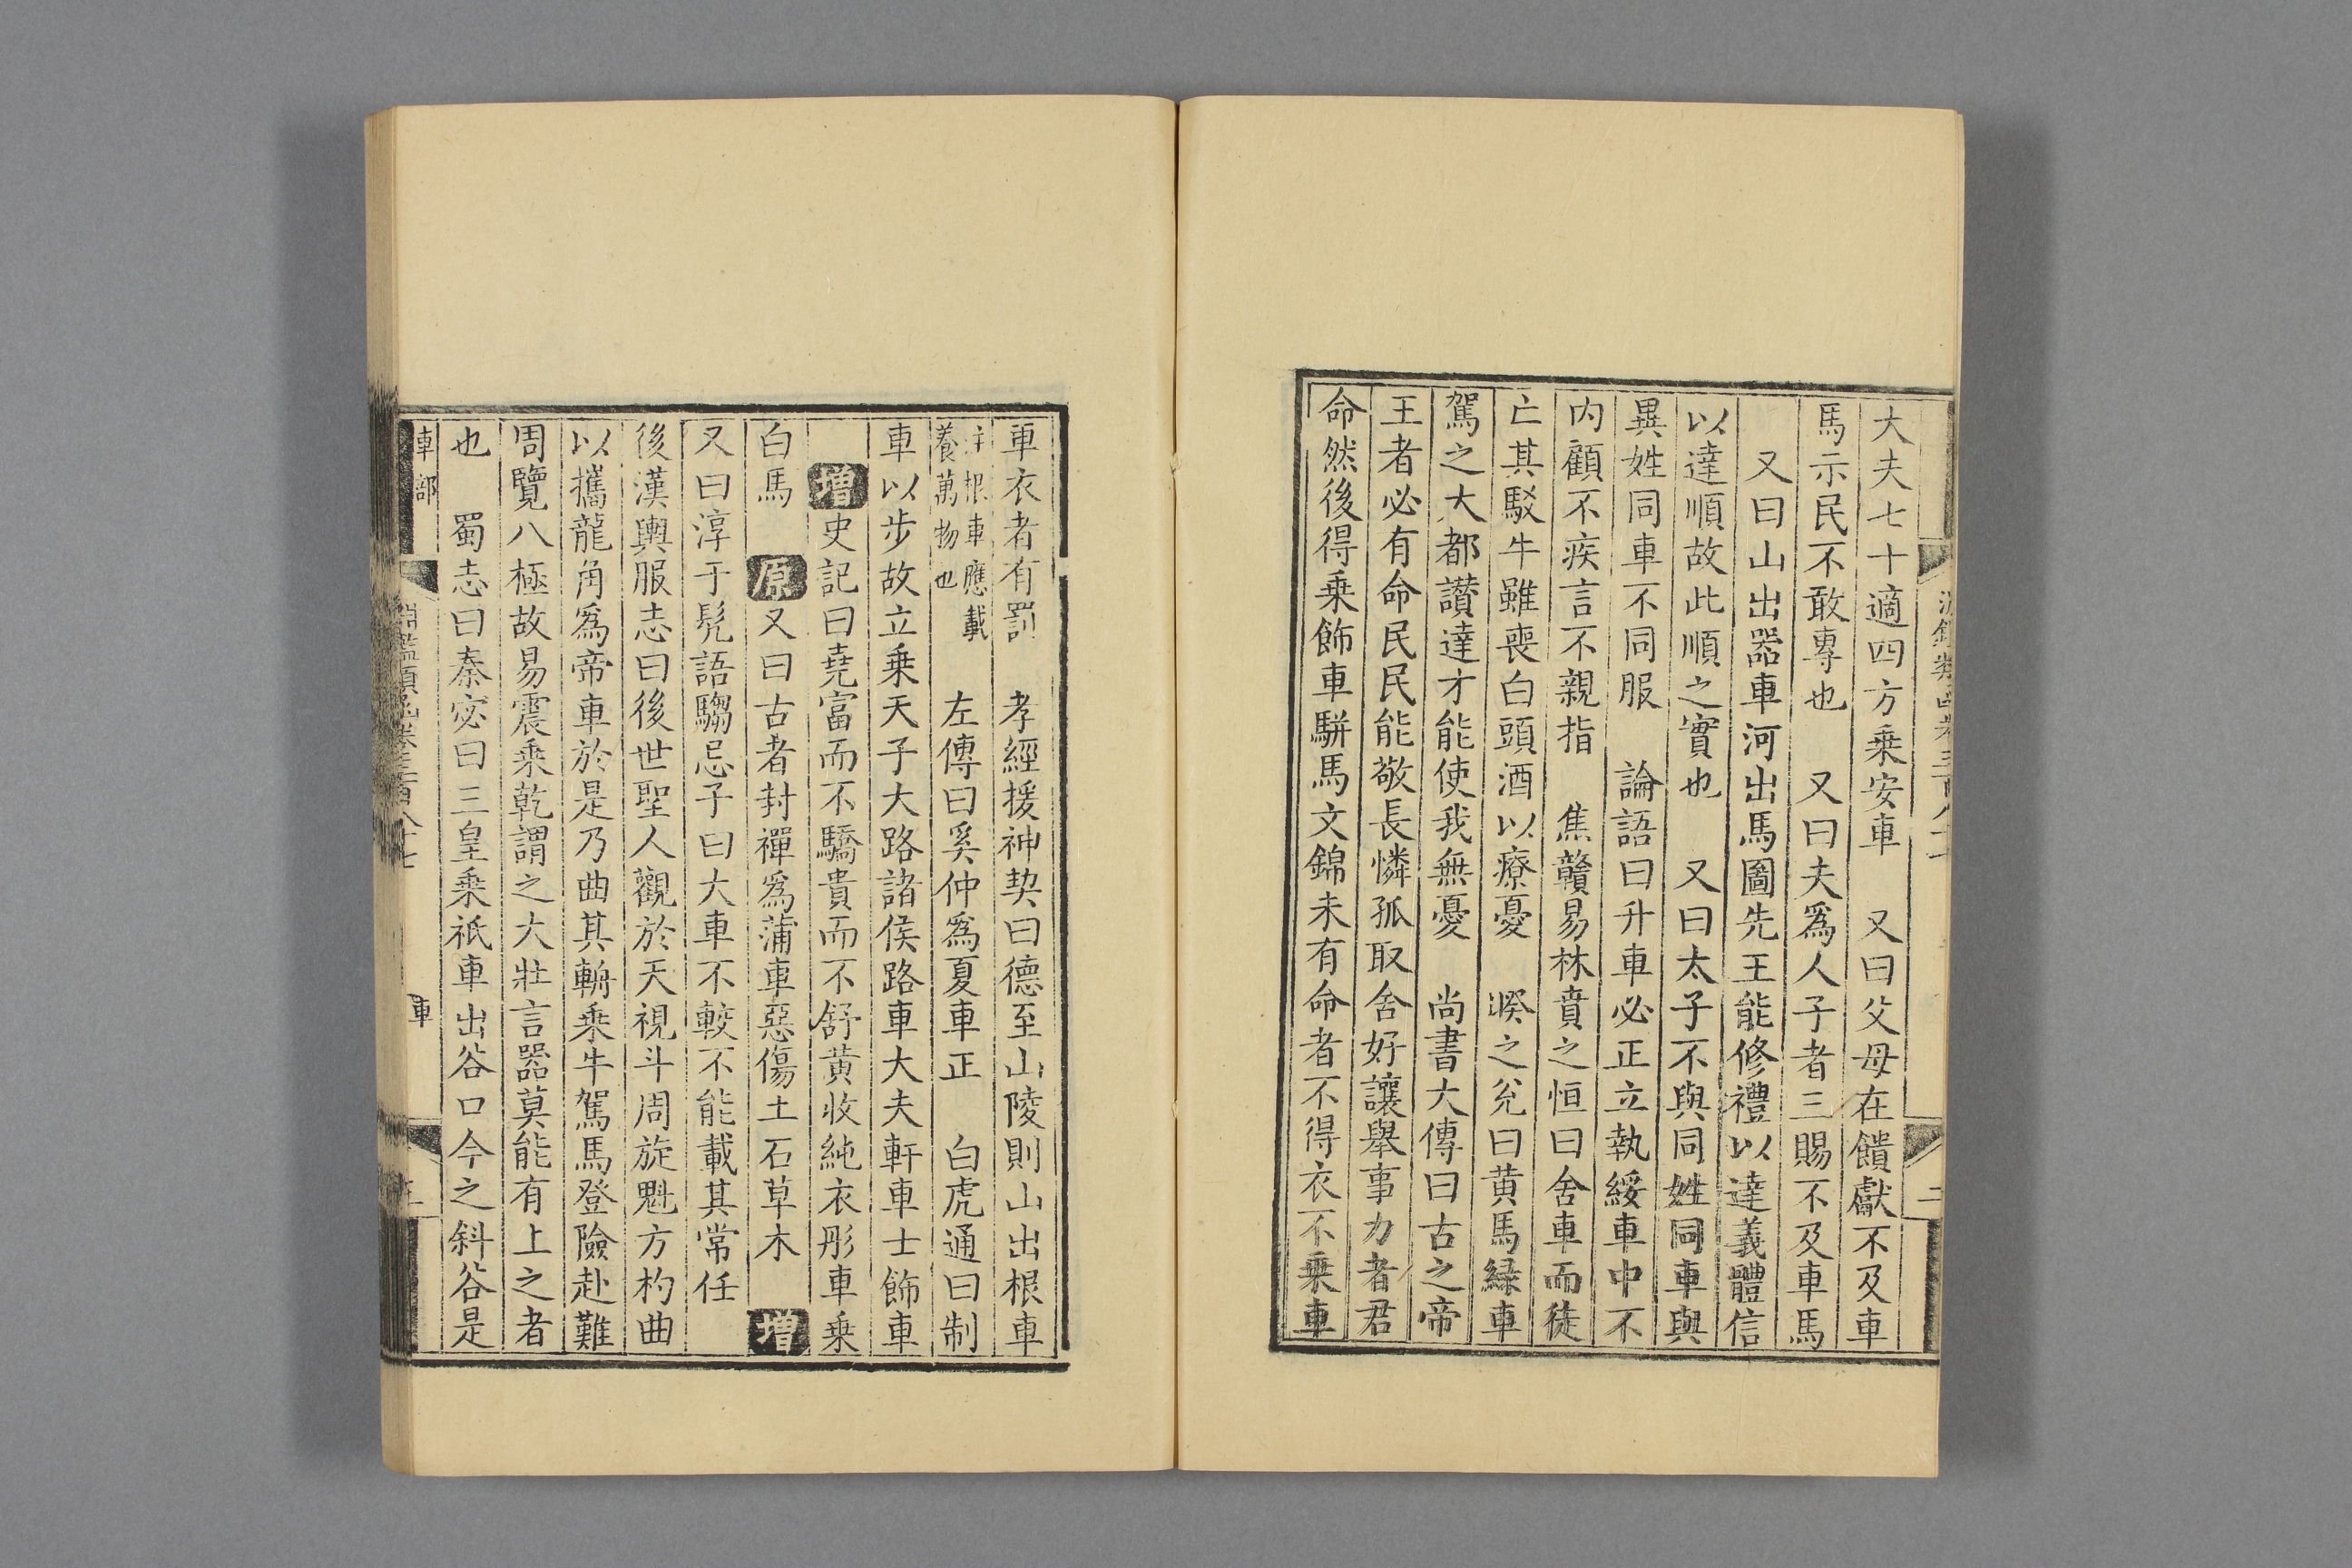 大夫七十適四方乗安車　又曰父母在饋獻不及車
馬示民不敢專也　又曰夫爲人子者三賜不及車馬
又曰山出器車河出馬圖先王能修禮以達義體信
以達順故此順之實也　又曰太子不與同姓同車與
異姓同車不同服　論語曰升車必正立執綏車中不
内顧不疾言不親指　焦贛易林賁之恒曰舍車而徒
亡其駁牛雖喪白頭酒以療憂　睽之兊曰黄馬緑車
駕之大都讚達才能使我無憂　尚書大傳曰古之帝
王者必有命民民能敬長憐孤取舍好讓舉事力者君
命然後得乗飾車駢馬文錦未有命者不得衣不乗車
車衣者有罰　孝經援神契曰德至山陵則山出根車
注根車應載
養萬物也
左傳曰奚仲爲夏車正　白虎通曰制
車以步故立乗天子大路諸侯路車大夫軒車士飾車
增史記曰堯富而不驕貴而不舒黄收純衣彤車乗
白馬　原又曰古者封禪爲蒲車惡傷土石草木　增
又曰淳于髠語騶忌子曰大車不較不能載其常任
後漢輿服志曰後世聖人觀於天視斗周旋魁方杓曲
以攜龍角爲帝車於是乃曲其輈乗牛駕馬登險赴難
周覽八極故易震乗乾謂之大壯言器莫能有上之者
也　蜀志曰秦宓曰三皇乗祇車出谷口今之斜谷是
車部
淵鑑類函卷三百八十七
車